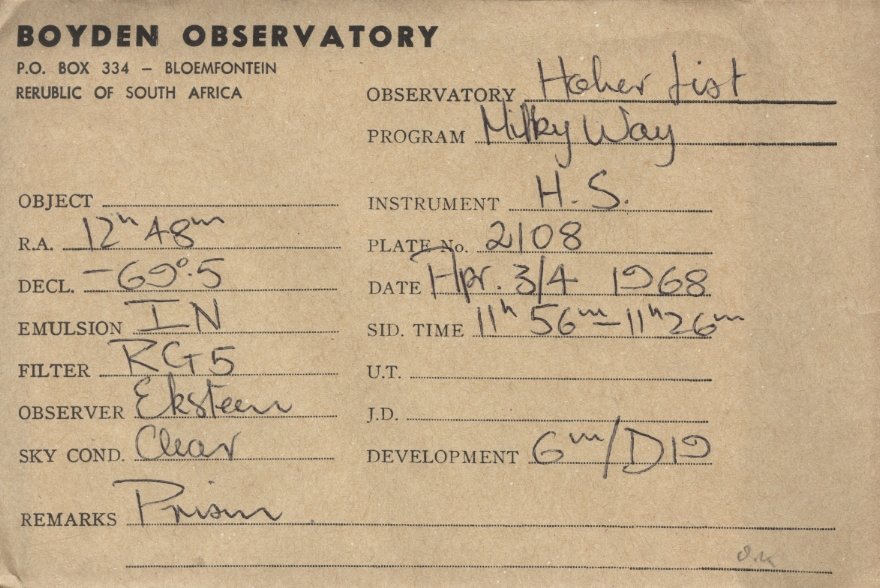 BOYDEN OBSERVATORY
P.O. BOX 334 – BLOEMFONTEIN
RERUBLIC OF SOUTH AFRICA
OBSERVATORY Hoher List
PROGRAM Milky Way
OBJECT
R.A. 12h 48m
DECL. –69°.5
EMULSION IN
FILTER RG5
OBSERVER Eksteen
SKY COND. Clear
INSTRUMENT H.S.
PLATE No. 2108
DATE Apr. 3/4 1968
SID. TIME 11h 56m – 11h 26m
U.T.
J.D.
DEVELOPMENT 6m/D19
REMARKS Prism
O.K